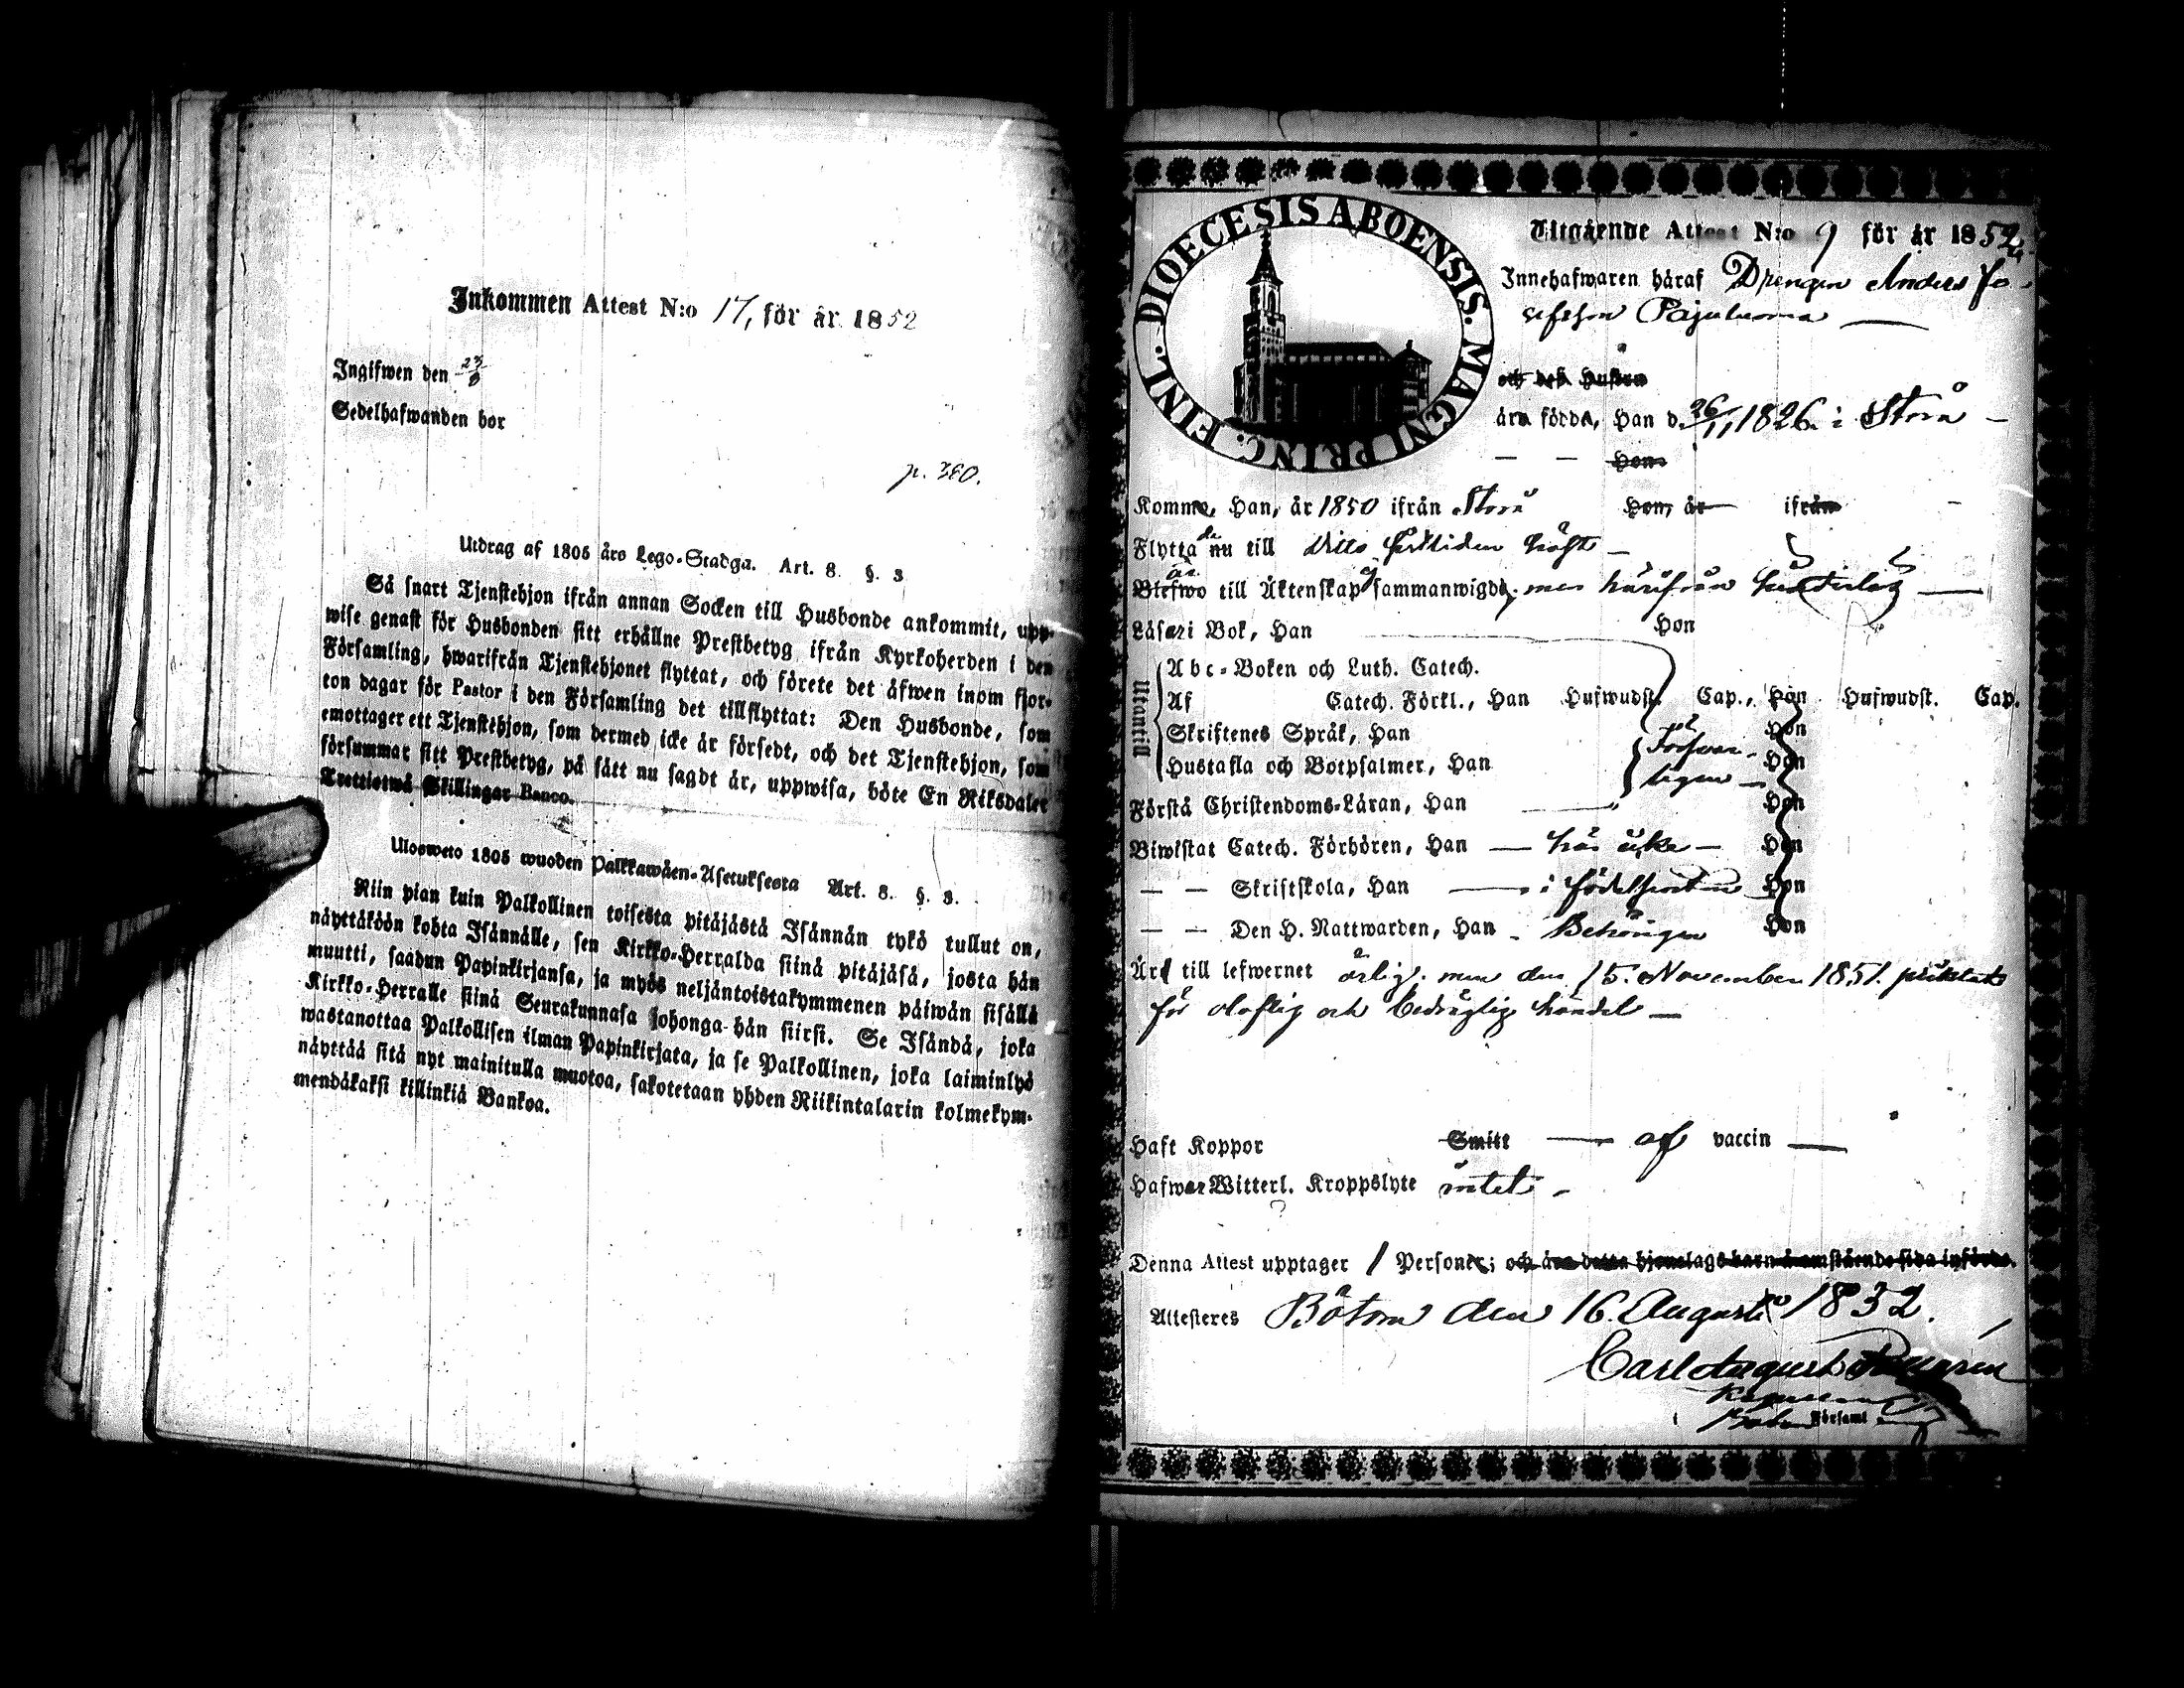 Inkommen Attest N:o 17, för år 1852
Ingifwen den 23/8
Sedelhafwanden bor
p. 380.
Utdrag af 1805 års Lego-Stadga. Art. 8. §. 3
Så snart Tjenstehjon ifrån annan Socken till Husbonde ankommit, upp-
wise genast för Husbonden sitt erhållne Prestbetyg ifrån Kyrkoherden i den
Församling, hwarifrån Tjenstehjonet flyttat, och förete det äfwen inom fjor-
ton dagar för Pastor i den Församling det tillflyttat: Den Husbonde, som
emottager ett Tjenstehjon, som dermed icke är försedt, och det Tjenstehjon, som
försummar sitt Prestbetyg, på sätt nu sagdt är, uppwisa, böte En Riksdaler
Trettiotwå Skillingar Banco.
Ulosweto 1805 wuoden Palkkawäen-Asetuksesta Art. 8. §. 3.
Niin pian kuin Palkollinen toisesta pitäjästä Isännän tykö tullut on,
näyttäköön kohta Isännälle, sen Kirkko-Herralda siinä pitäjäsä, josta hän
muutti, saadun Papinkirjansa, ja myös neljäntoistakymmenen päiwän sisällä
Kirkko-Herralle siinä Seurakunnasa johonga hän siirsi. Se Isändä, joka
wastanottaa Palkollisen ilman Papinkirjata, ja se Palkollinen, joka laiminlyö
näyttää sitä nyt mainitulla muotoa, sakotetaan yhden Riikintalarin kolmekym-
mendäkaksi killinkiä Bankoa.
DIOECESIS ABOENSIS. MAGNI PRINC. FINL.
Utgående Attest N:o 9 för år 1852
Innehafwaren häraf Drengen Anders Jo-
sefsson Pajuluoma
och dess Hustru
äro födde, Han d. 26/11 1826 i Storå
— — Hon
Komne, Han, år 1850 ifrån Storå Hon, år ifrån
Flytta nu till
Blefwo till Äktenskap sammanwigde, men härifrån hinderlös
Läsa i Bok, Han Hon
Utantill
Abc-Boken och Luth. Catech.
Af Catech. Förkl., Han Hufwudst. Cap., Hon Hufwudst. Cap.
Skriftenes Språk, Han Hon
Hustafla och Botpsalmer, Han Hon
Förstå Christendoms-Läran, Han Hon
Biwistat Catech. Förhören, Han — här icke — Hon
— — Skriftskola, Han — i födelseorten Hon
— — Den H. Nattwarden, Han Behörigen Hon
Äro till lefwernet ärlig, men den 15 November 1851 pliktat
för oloflig och bedräglig handel —
Haft Koppor Smitt — af vaccin —
Hafwa Witterl. Kroppslyte intet
Denna Attest upptager 1 Personer; och äro detta hjonelags barn å omstående sida införde.
Attesteres Bötom den 16 Augusti 1852.
Carl August
Församl